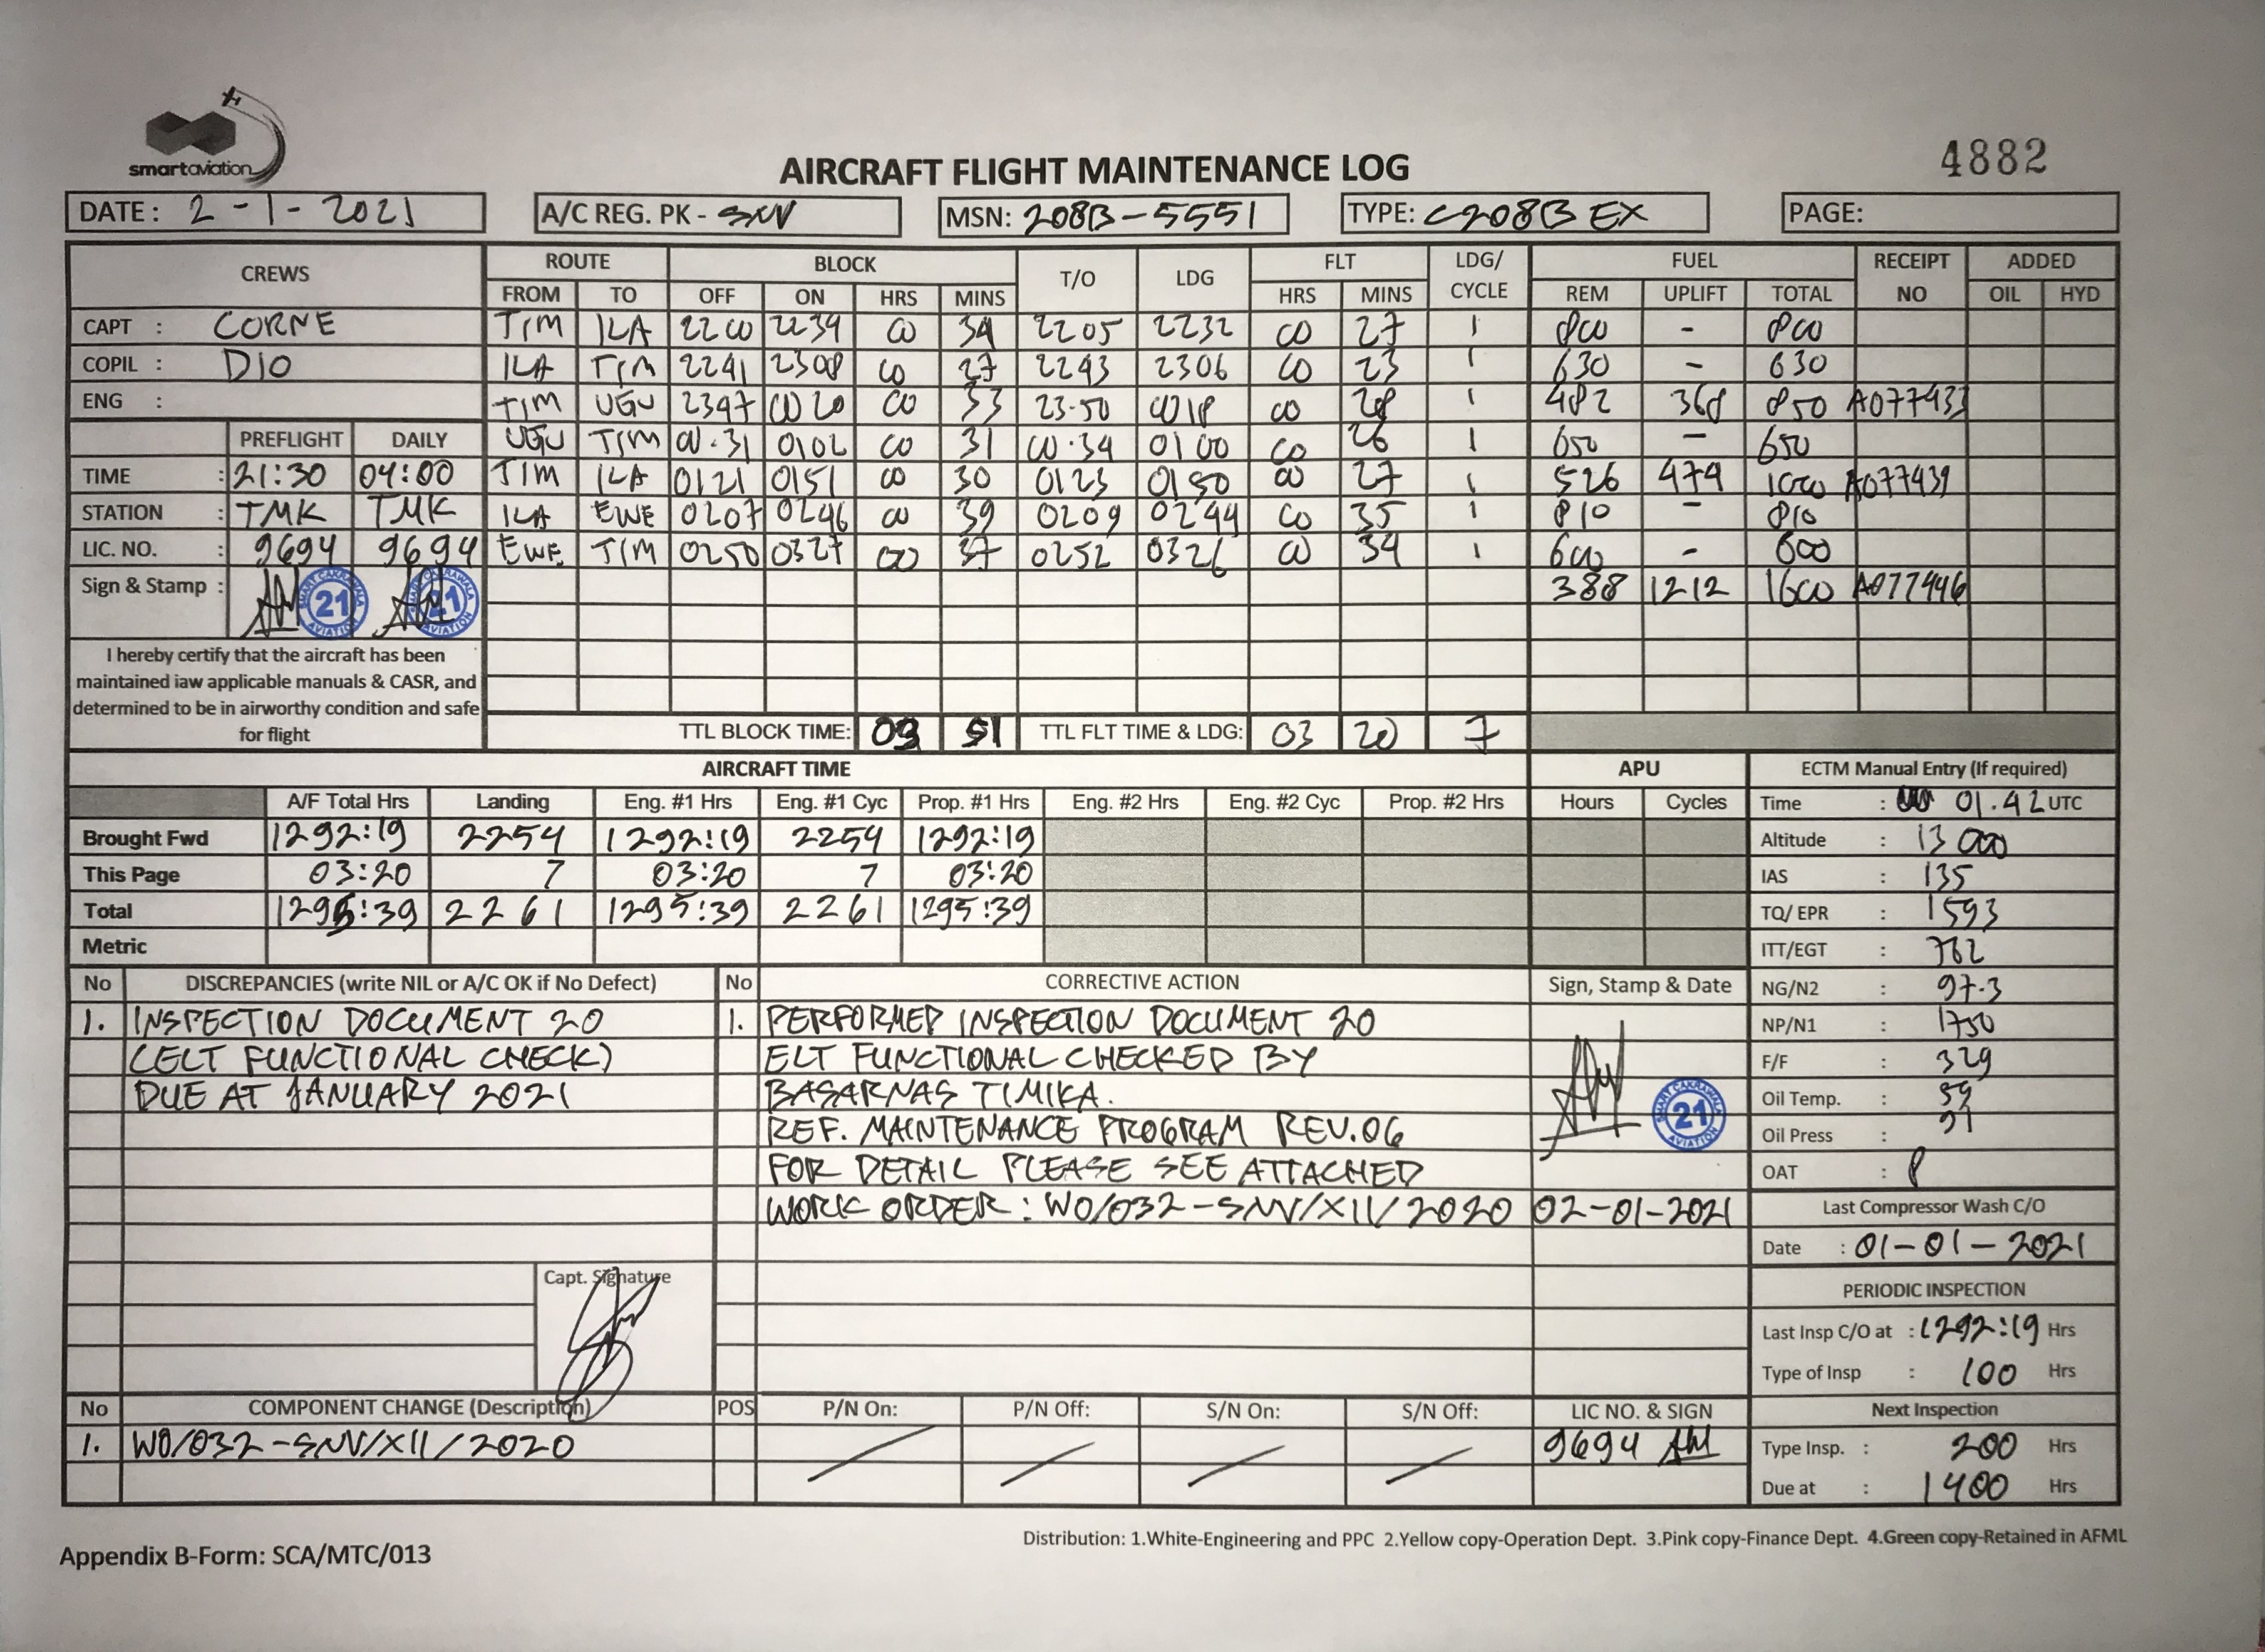 smartaviation
4882
AIRCRAFT FLIGHT MAINTENANCE LOG
DATE : 2 - 1 - 2021 A/C REG. PK - SNV MSN: 208B-5551 TYPE: C208B EX PAGE:
CREWS ROUTE BLOCK T/O LDG FLT LDG/ CYCLE FUEL RECEIPT NO ADDED
FROM TO OFF ON HRS MINS HRS MINS REM UPLIFT TOTAL OIL HYD
CAPT : CORNE TIM ILA 2200 2234 00 34 2205 2232 00 27 1 800 - 800
COPIL : DIO ILA TIM 2241 2308 00 27 2243 2306 00 23 1 630 - 630
ENG : TIM UGU 2347 0020 00 33 23.50 0018 00 28 1 482 368 850 A077433
PREFLIGHT DAILY UGU TIM 00.31 0102 00 31 00.34 0100 00 26 1 650 - 650
TIME : 21:30 04:00 TIM ILA 0121 0151 00 30 0123 0150 00 27 1 526 474 1000 A077439
STATION : TMK TMK ILA EWE 0207 0246 00 39 0209 0244 00 35 1 810 - 810
LIC. NO. : 9694 9694 EWE TIM 0250 0327 00 37 0252 0326 00 34 1 600 - 600
Sign & Stamp : SMART CAKRAWALA 21 AVIATION SMART CAKRAWALA 21 AVIATION 388 1212 1600 A077446
I hereby certify that the aircraft has been
maintained iaw applicable manuals & CASR, and
determined to be in airworthy condition and safe
for flight
TTL BLOCK TIME: 03 51 TTL FLT TIME & LDG: 03 20 7
AIRCRAFT TIME APU ECTM Manual Entry (If required)
A/F Total Hrs Landing Eng. #1 Hrs Eng. #1 Cyc Prop. #1 Hrs Eng. #2 Hrs Eng. #2 Cyc Prop. #2 Hrs Hours Cycles Time : 01.42 UTC
Brought Fwd 1292:19 2254 1292:19 2254 1292:19 Altitude : 13 000
This Page 03:20 7 03:20 7 03:20 IAS : 135
Total 1295:39 2261 1295:39 2261 1295:39 TQ/ EPR : 1593
Metric ITT/EGT : 762
No DISCREPANCIES (write NIL or A/C OK if No Defect) No CORRECTIVE ACTION Sign, Stamp & Date NG/N2 : 97.3
1. INSPECTION DOCUMENT 20 1. PERFORMED INSPECTION DOCUMENT 20 NP/N1 : 1750
(ELT FUNCTIONAL CHECK) ELT FUNCTIONAL CHECKED BY F/F : 329
DUE AT JANUARY 2021 BASARNAS TIMIKA. SMART CAKRAWALA 21 AVIATION Oil Temp. : 59
REF. MAINTENANCE PROGRAM REV.06 Oil Press : 91
FOR DETAIL PLEASE SEE ATTACHED OAT : 8
WORK ORDER : WO/032-SNV/XII/2020 02-01-2021 Last Compressor Wash C/O
Date : 01-01-2021
Capt. Signature
PERIODIC INSPECTION
Last Insp C/O at : 1292:19 Hrs
Type of Insp : 100 Hrs
No COMPONENT CHANGE (Description) POS P/N On: P/N Off: S/N On: S/N Off: LIC NO. & SIGN Next Inspection
1. WO/032-SNV/XII/2020 9694 Type Insp. : 200 Hrs
Due at : 1400 Hrs
Distribution: 1.White-Engineering and PPC 2.Yellow copy-Operation Dept. 3.Pink copy-Finance Dept. 4.Green copy-Retained in AFML
Appendix B-Form: SCA/MTC/013